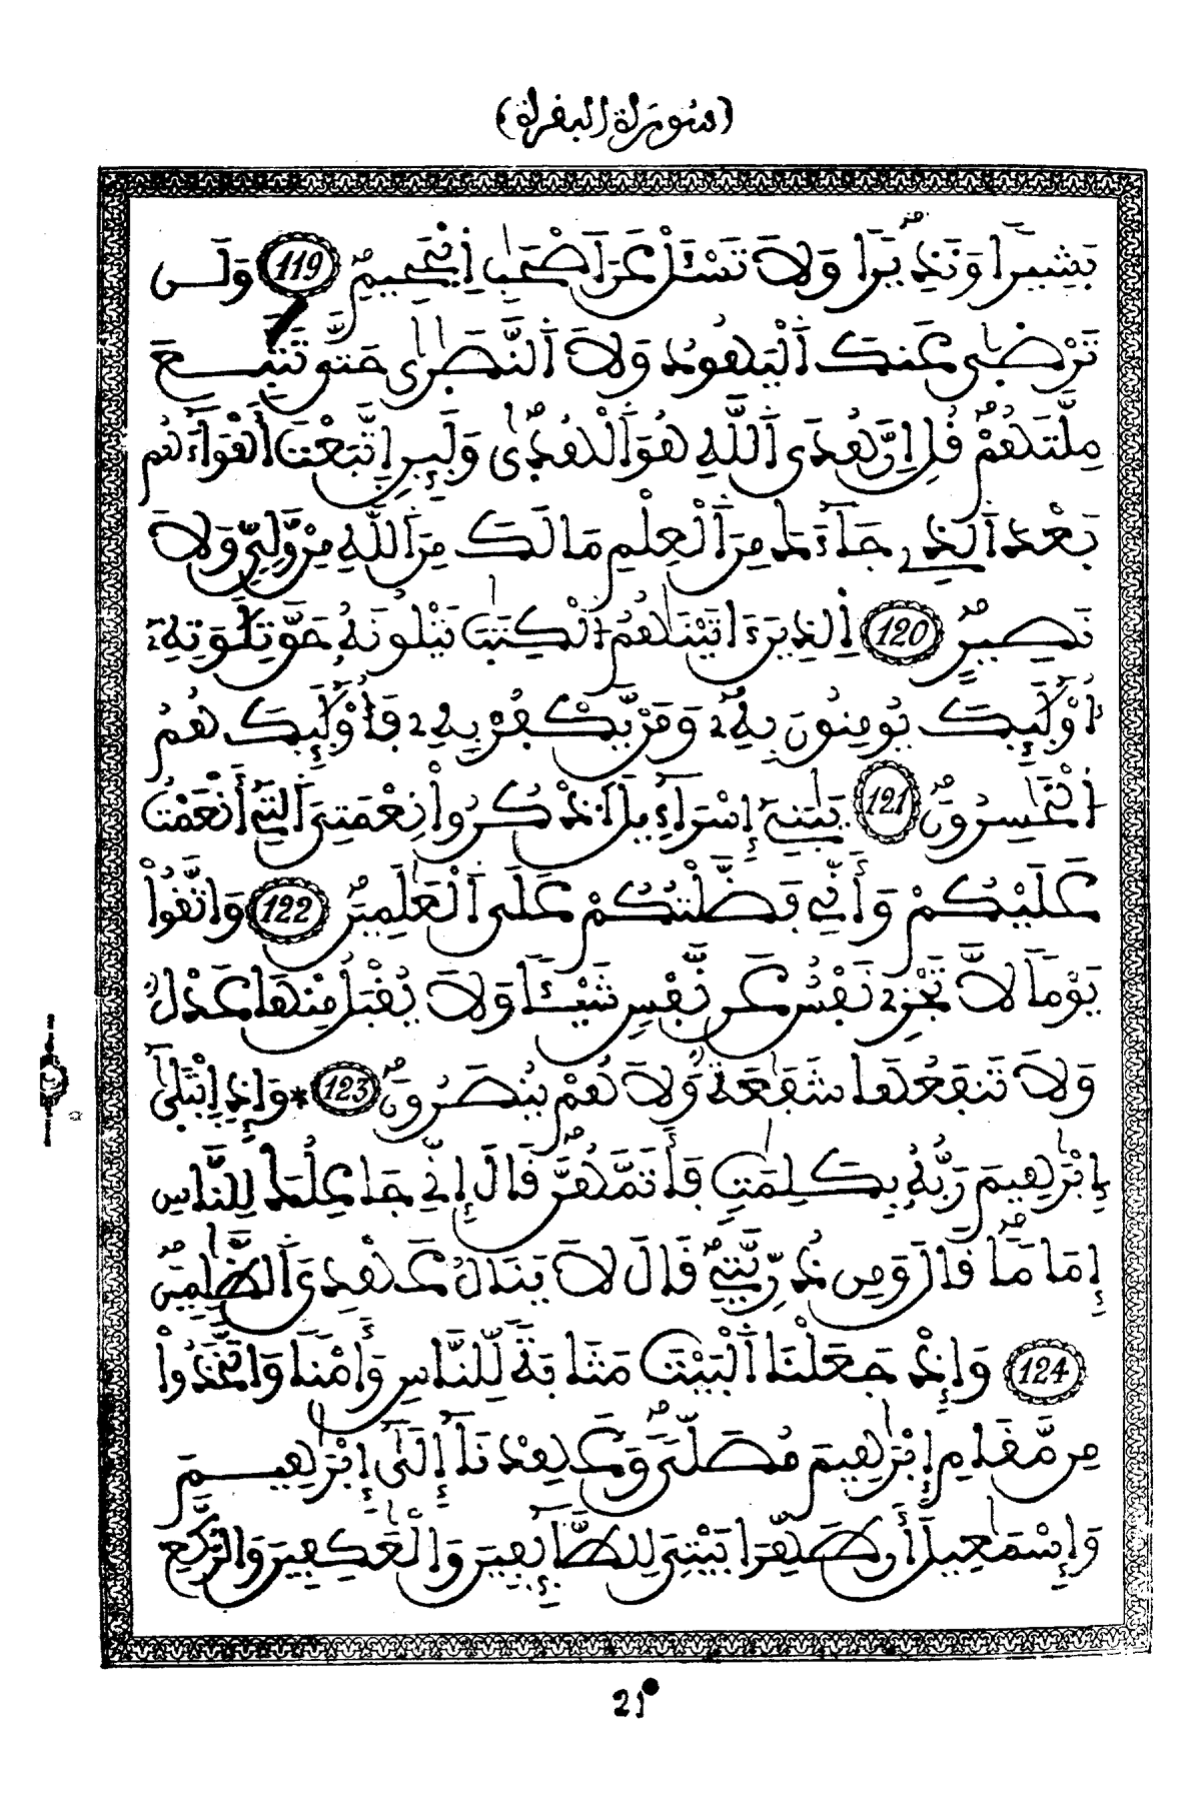 (سُورَةُ الْبَقَرَةِ)
بَشِيراً وَنَذِيراً وَلَا تَسْـَٔلْ عَنَ اَصْحَٰبِ اِ۬لْجَحِيمِ 119 وَلَن
تَرْضَىٰ عَنكَ اَ۬لْيَهُودُ وَلَا اَ۬لنَّصَٰرَىٰ حَتَّىٰ تَتَّبِعَ
مِلَّتَهُمْ قُلِ اِنَّ هُدَى اَ۬للَّهِ هُوَ اَ۬لْهُدَىٰ وَلَئِنِ اِ۪تَّبَعْتَ أَهْوَآءَهُم
بَعْدَ اَ۬لذِے جَآءَكَ مِنَ اَ۬لْعِلْمِ مَا لَكَ مِنَ اَ۬للَّهِ مِنْ وَّلِيٍّ وَلَا
نَصِيرٍ 120 اِ۬لذِينَ ءَاتَيْنَٰهُمُ اُ۬لْكِتَٰبَ يَتْلُونَهُۥ حَقَّ تِلَٰوَتِهِۦٓ
أُوْلَٰٓئِكَ يُومِنُونَ بِهِۦ وَمَنْ يَّكْفُرْ بِهِۦ فَأُوْلَٰٓئِكَ هُمُ
اُ۬لْخَٰسِرُونَ 121 يَٰبَنِےٓ إِسْرَآءِيلَ اَ۟ذْكُرُواْ نِعْمَتِيَ اَ۬لتِےٓ أَنْعَمْتُ
عَلَيْكُمْ وَأَنِّے فَضَّلْتُكُمْ عَلَى اَ۬لْعَٰلَمِينَ 122 وَاتَّقُواْ
يَوْماً لَّا تَجْزِے نَفْسٌ عَن نَّفْسٍ شَيْـٔاً وَلَا يُقْبَلُ مِنْهَا عَدْلٌ
وَلَا تَنفَعُهَا شَفَٰعَةٌ وَلَا هُمْ يُنصَرُونَ 123 * وَإِذِ اِ۪بْتَلَىٰٓ
إِبْرَٰهِيمَ رَبُّهُۥ بِكَلِمَٰتٍ فَأَتَمَّهُنَّ قَالَ إِنِّے جَاعِلُكَ لِلنَّاسِ
إِمَاماً قَالَ وَمِن ذُرِّيَّتِے قَالَ لَا يَنَالُ عَهْدِيَ اَ۬لظَّٰلِمِينَ
124 وَإِذْ جَعَلْنَا اَ۬لْبَيْتَ مَثَابَةً لِّلنَّاسِ وَأَمْناً وَاتَّخَذُواْ
مِن مَّقَامِ إِبْرَٰهِيمَ مُصَلّىً وَعَهِدْنَآ إِلَىٰٓ إِبْرَٰهِيمَ
وَإِسْمَٰعِيلَ أَن طَهِّرَا بَيْتِيَ لِلطَّآئِفِينَ وَالْعَٰكِفِينَ وَالرُّكَّعِ
21